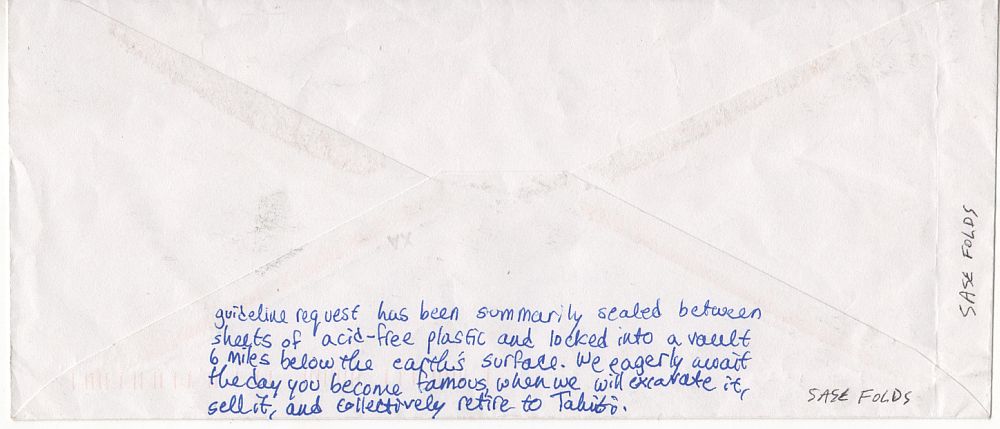 guideline request has been summarily sealed between
sheets of acid-free plastic and locked into a vault
6 miles below the earth's surface. We eagerly await
the day you become famous, when we will excavate it,
sell it, and collectively retire to Tahiti.
SASE FOLDS
SASE FOLDS